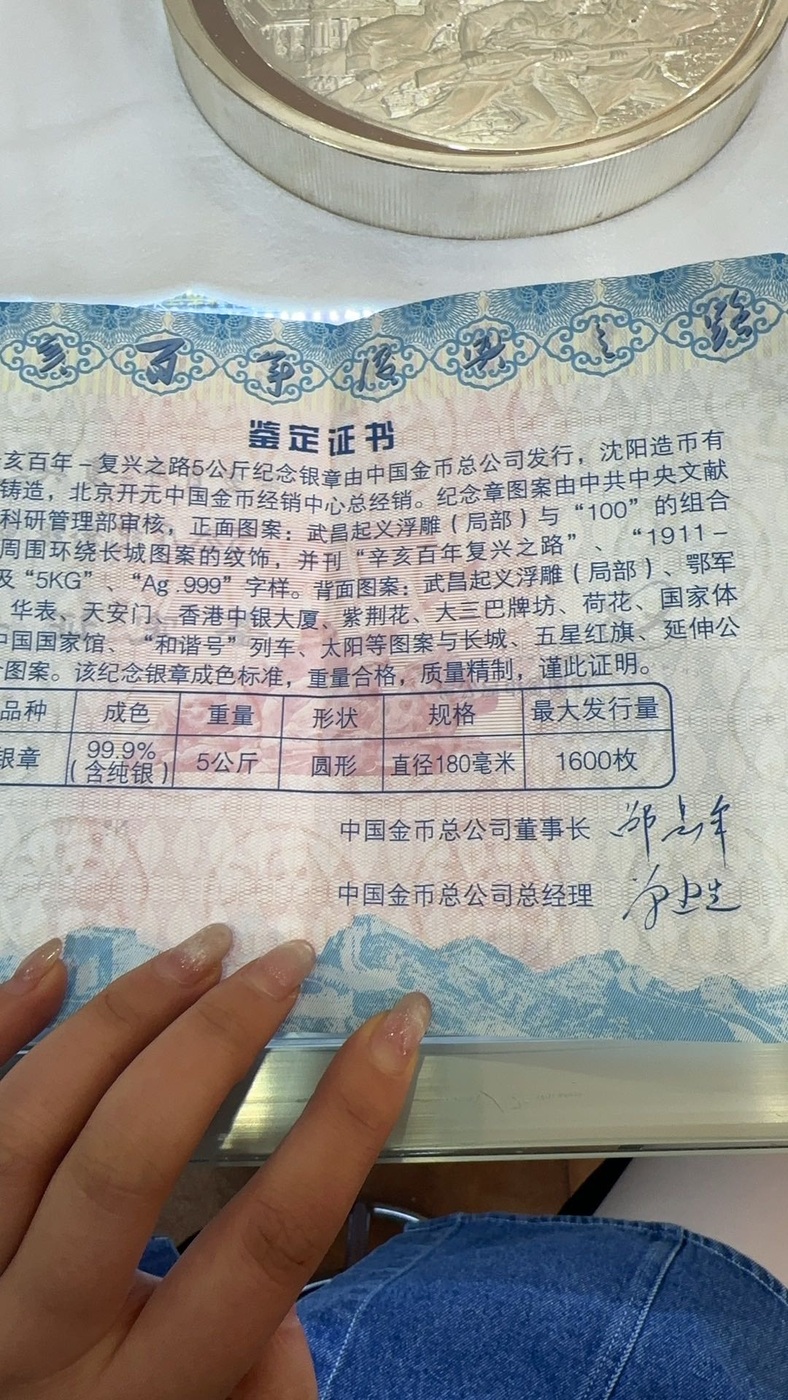 亥百年复兴之路
鉴定证书
亥百年－复兴之路5公斤纪念银章由中国金币总公司发行，沈阳造币有
铸造，北京开元中国金币经销中心总经销。纪念章图案由中共中央文献
科研管理部审核，正面图案：武昌起义浮雕（局部）与“100”的组合
周围环绕长城图案的纹饰，并刊“辛亥百年复兴之路”、“1911－
及“5KG”、“Ag .999”字样。背面图案：武昌起义浮雕（局部）、鄂军
、华表、天安门、香港中银大厦、紫荆花、大三巴牌坊、荷花、国家体
中国国家馆、“和谐号”列车、太阳等图案与长城、五星红旗、延伸公
图案。该纪念银章成色标准，重量合格，质量精制，谨此证明。
品种 成色 重量 形状 规格 最大发行量
银章 99.9%（含纯银） 5公斤 圆形 直径180毫米 1600枚
中国金币总公司董事长
中国金币总公司总经理